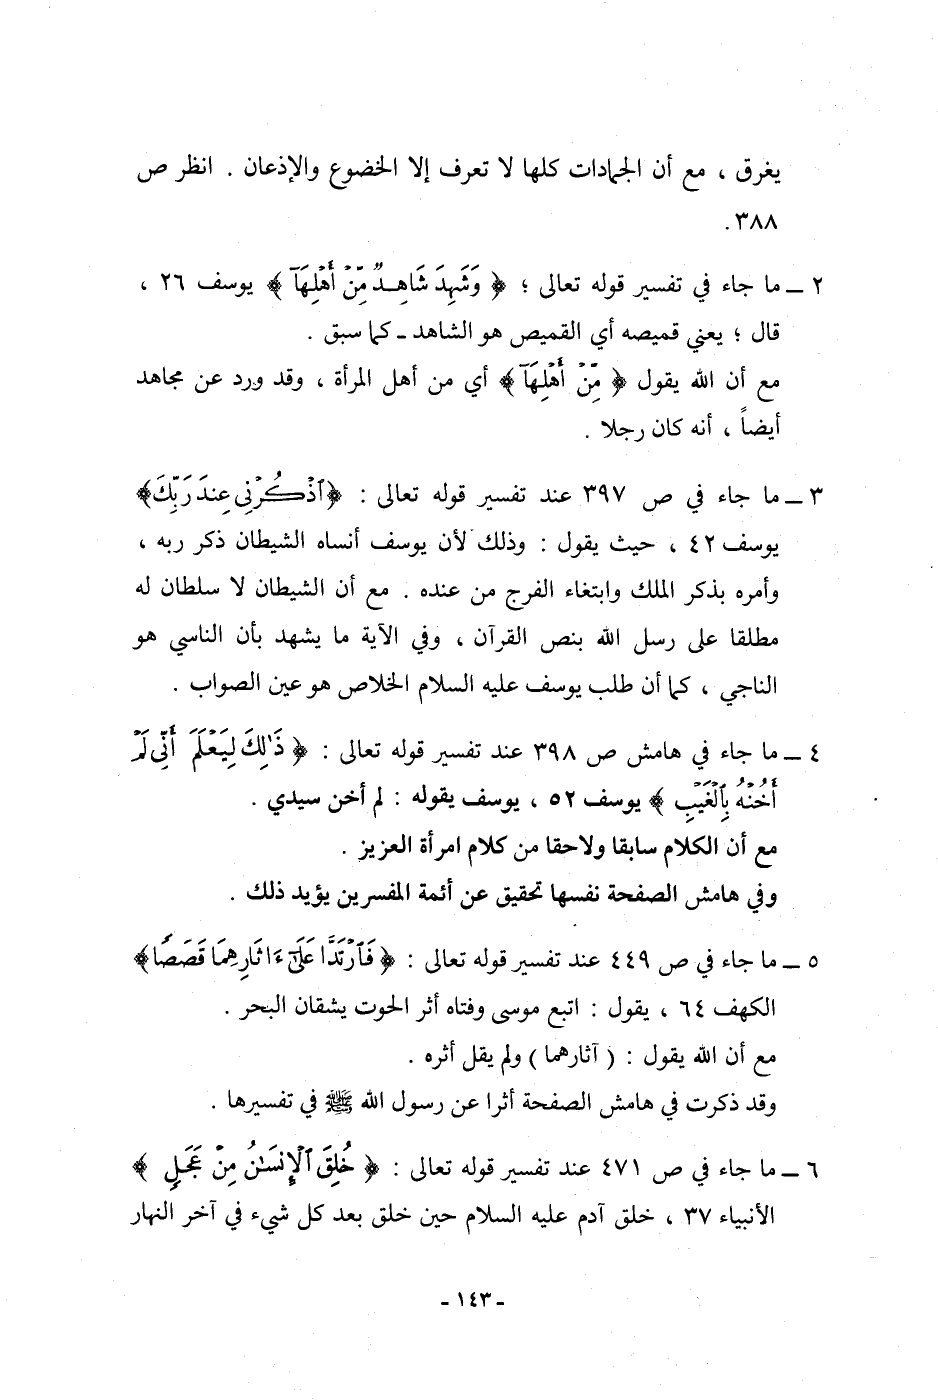 يغرق ، مع أن الجمادات كلها لا تعرف إلا الخضوع والإذعان . انظر ص
٣٨٨.
٢ ــ ما جاء في تفسير قوله تعالى ؛ ﴿ وَشَهِدَ شَاهِدٌ مِّنْ أَهْلِهَآ ﴾ يوسف ٢٦ ،
قال ؛ يعني قميصه أي القميص هو الشاهد ـ كما سبق .
مع أن الله يقول ﴿ مِّنْ أَهْلِهَآ ﴾ أي من أهل المرأة ، وقد ورد عن مجاهد
أيضاً ، أنه كان رجلا .
٣ ــ ما جاء في ص ٣٩٧ عند تفسير قوله تعالى : ﴿ٱذْكُرْنِي عِندَ رَبِّكَ﴾
يوسف ٤٢ ، حيث يقول : وذلك لأن يوسف أنساه الشيطان ذكر ربه ،
وأمره بذكر الملك وابتغاء الفرج من عنده . مع أن الشيطان لا سلطان له
مطلقا على رسل الله بنص القرآن ، وفي الآية ما يشهد بأن الناسي هو
الناجي ، كما أن طلب يوسف عليه السلام الخلاص هو عين الصواب .
٤ ــ ما جاء في هامش ص ٣٩٨ عند تفسير قوله تعالى : ﴿ ذَٰلِكَ لِيَعْلَمَ أَنِّي لَمْ
أَخُنْهُ بِٱلْغَيْبِ ﴾ يوسف ٥٢ ، يوسف يقوله : لم أخن سيدي .
مع أن الكلام سابقا ولاحقا من كلام امرأة العزيز .
وفي هامش الصفحة نفسها تحقيق عن أئمة المفسرين يؤيد ذلك .
٥ ــ ما جاء في ص ٤٤٩ عند تفسير قوله تعالى : ﴿ فَٱرْتَدَّا عَلَىٰٓ ءَاثَارِهِمَا قَصَصًا﴾
الكهف ٦٤ ، يقول : اتبع موسى وفتاه أثر الحوت يشقان البحر .
مع أن الله يقول : ( آثارهما ) ولم يقل أثره .
وقد ذكرت في هامش الصفحة أثرا عن رسول الله ﷺ في تفسيرها .
٦ ــ ما جاء في ص ٤٧١ عند تفسير قوله تعالى : ﴿ خُلِقَ ٱلْإِنسَٰنُ مِنْ عَجَلٍ ﴾
الأنبياء ٣٧ ، خلق آدم عليه السلام حين خلق بعد كل شيء في آخر النهار
- ١٤٣ -